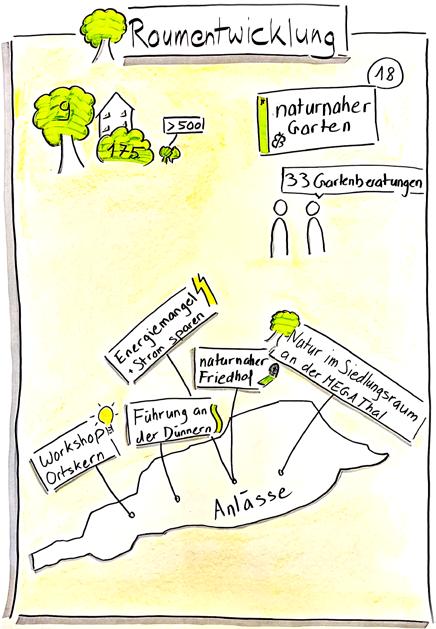 Raumentwicklung
18
9
175
>500
naturnaher
Garten
33 Gartenberatungen
Energiemangel
+ Strom sparen
naturnaher
Friedhof
Natur im Siedlungsraum
an der MEGA Thal
Führung an
der Dünnern
Workshop
Ortskern
Anlässe